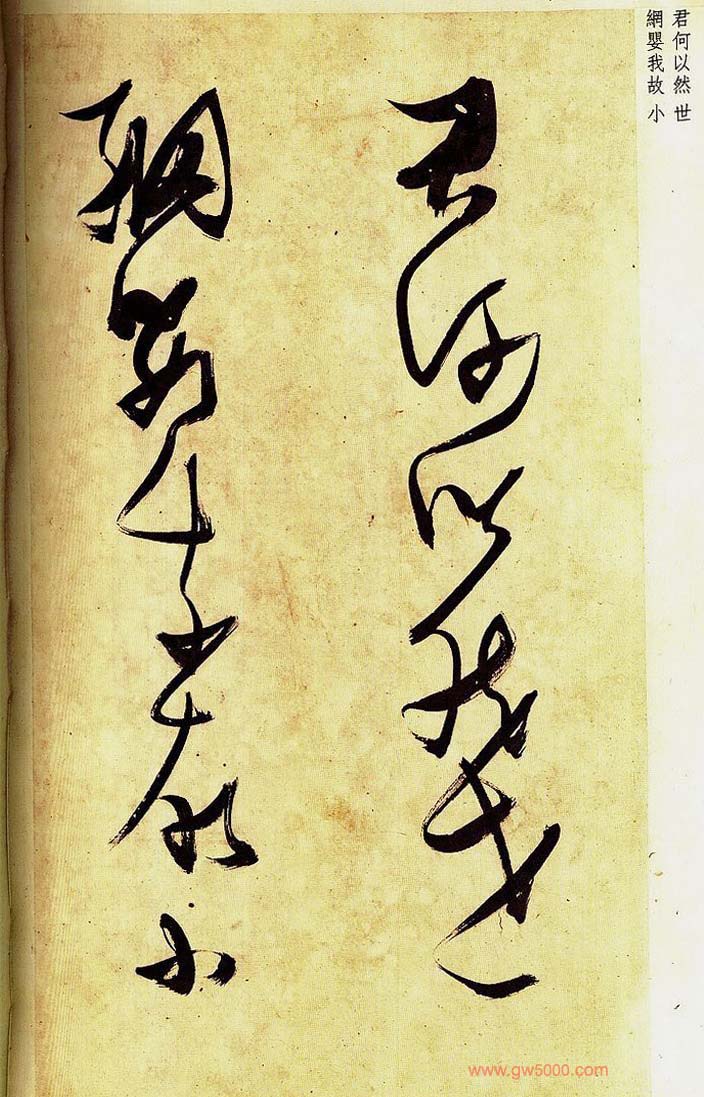 君何以然世
網嬰我故小
君何以然世
網嬰我故小
www.gw5000.com